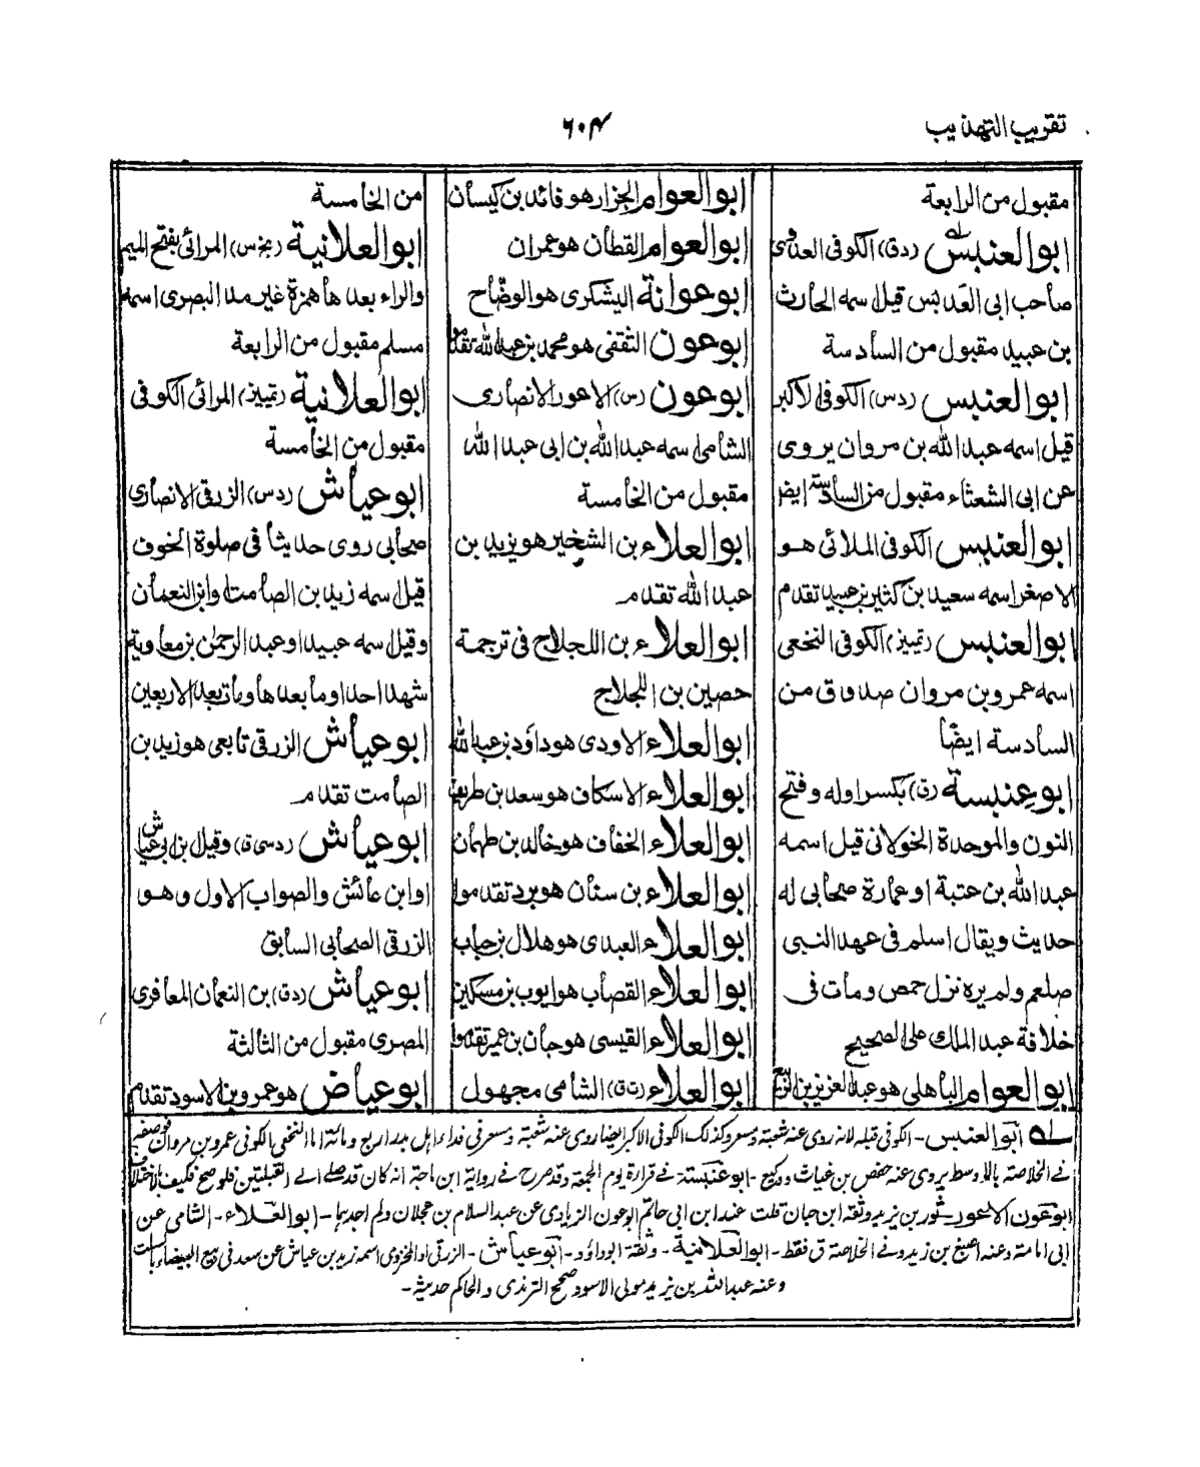 تقريب التهذيب
٦٠٤
مقبول من الرابعة
ابو العنبس (دق) الكوفى العدوى
صاحب ابى العدبس قيل اسمه الحارث
بن عبيد مقبول من السادسة
ابو العنبس (دس) الكوفى الاكبر
قيل اسمه عبد الله بن مروان يروى
عن ابى الشعثاء مقبول من السادسة ايضا
ابو العنبس الكوفى الملائى هو
الاصغر اسمه سعيد بن كثير بن عبيد تقدم
ابو العنبس (تمييز) الكوفى النخعى
اسمه عمرو بن مروان صدوق من
السادسة ايضًا
ابو عنبسة (ق) بكسر اوله وفتح
النون والموحدة الخولانى قيل اسمه
عبد الله بن عتبة او عمارة صحابى له
حديث ويقال اسلم فى عهد النبى
صلعم ولم يره نزل حمص ومات فى
خلافة عبد الملك على الصحيح
ابو العوام الباهلى هو عبد العزيز بن الربيع
ابو العوام الجزار هو فائد بن كيسان
ابو العوام القطان هو عمران
ابو عوانة اليشكرى هو الوضّاح
ابو عون الثقفى هو محمد بن عبد الله تقدموا
ابو عون (س) الاعور الانصارى
الشامى اسمه عبد الله بن ابى عبد الله
مقبول من الخامسة
ابو العلاء بن الشخير هو يزيد بن
عبد الله تقدم
ابو العلاء بن اللجلاج فى ترجمة
حصين بن اللجلاج
ابو العلاء الاودى هو داؤد بن عبد الله
ابو العلاء الاسكاف هو سعد بن طريف
ابو العلاء الخفاف هو خالد بن طهمان
ابو العلاء بن سنان هو برد تقدموا
ابو العلاء العبدى هو هلال بن خباب
ابو العلاء القصاب هو ايوب بن مسكين
ابو العلاء القيسى هو حيان بن عمير تقدموا
ابو العلاء (ت ق) الشامى مجهول
من الخامسة
ابو العلانية (بخ س) المرائى بفتح الميم
والراء بعدها همزة غير مد البصرى اسمه
مسلم مقبول من الرابعة
ابو العلانية (تمييز) المرائى الكوفى
مقبول من الخامسة
ابو عياش (دس) الزرقى الانصارى
صحابى روى حديثا فى صلوة الخوف
قيل اسمه زيد بن الصامت او ابن النعمان
وقيل اسمه عبيد او عبد الرحمن بن معاوية
شهد احدا وما بعدها ومات بعد الاربعين
ابو عياش الزرقى تابعى هو زيد بن
الصامت تقدم
ابو عياش (دسى ق) وقيل ابن ابى عياش
او ابن عائش والصواب الاول وهو
الزرقى الصحابى السابق
ابو عياش (دق) بن النعمان المعافرى
المصرى مقبول من الثالثة
ابو عياض هو عمرو بن الاسود تقدم
له ابو العنبس - الكوفى قبله لانه روى عنه شعبة ومسعر وكذلك الكوفى الاكبر ايضا روى عنه شعبة ومسعر اما النخعى الكوفى عمرو بن مروان
فى الخلاصة بالاوسط يروى عنه حفص بن غياث ووكيع - ابو عنبسة - فى قراءة يوم الجمعة وقد صرح فى رواية ابن ماجة انه كان قد صلى الى القبلتين فلو صح فكيف بالاختلاف
ابو عون الاعور - ثور بن يزيد وثقه ابن حبان قلت عند ابن ابى حاتم ابو عون الزيادى عن عبد السلام بن عجلان ولم اجد بها - ابو العلاء - الشامى عن
ابى امامة وعنه اصبغ بن زيد وفى الخلاصة ق فقط - ابو العلانية - وثقه ابو داؤد - ابو عياش - الزرقى او المخزومى اسمه زيد بن عياش عن سعد فى بيع البيضاء بالسلت
وعنه عبد الله بن يزيد مولى الاسود صحح الترمذى والحاكم حديثه -